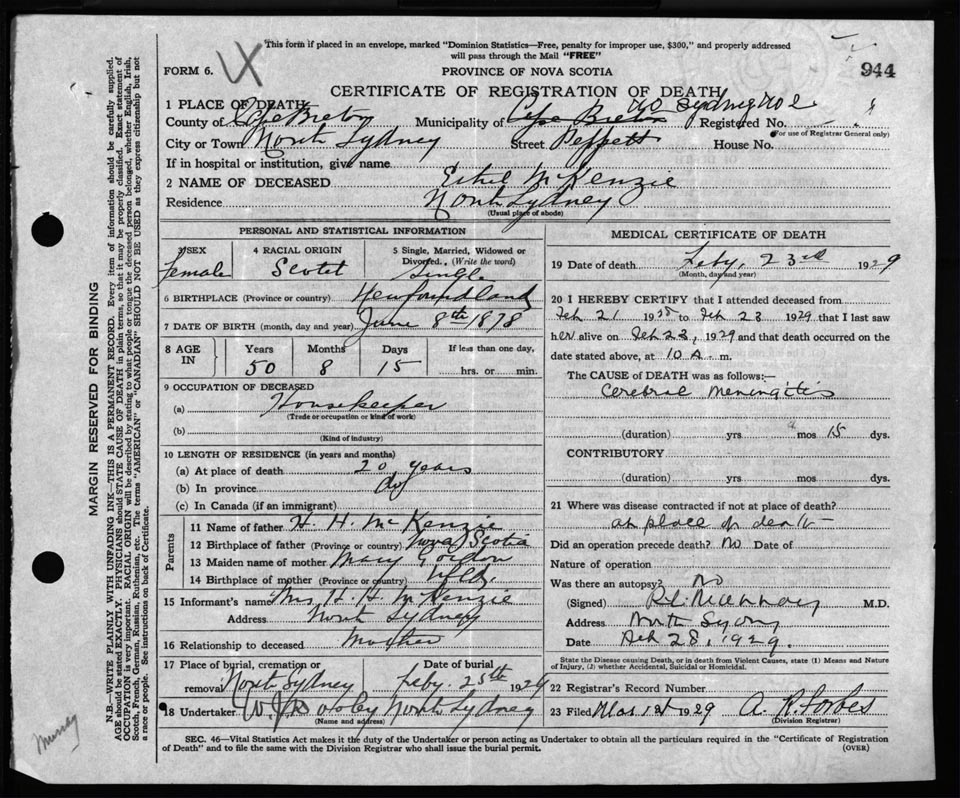 This form if placed in an envelope, marked "Dominion Statistics—Free, penalty for improper use, $300," and properly addressed
will pass through the Mail "FREE"
944
FORM 6.
PROVINCE OF NOVA SCOTIA
CERTIFICATE OF REGISTRATION OF DEATH
1 PLACE OF DEATH
County of Cape Breton Municipality of Cape Breton No Sydney Registered No.
(For use of Registrar General only)
City or Town North Sydney Street Peppett House No.
If in hospital or institution, give name
2 NAME OF DECEASED Ethel McKenzie
Residence North Sydney
(Usual place of abode)
PERSONAL AND STATISTICAL INFORMATION
3 SEX Female
4 RACIAL ORIGIN Scotch
5 Single, Married, Widowed or Divorced. (Write the word) Single
6 BIRTHPLACE (Province or country) Newfoundland
7 DATE OF BIRTH (month, day and year) June 8th 1878
8 AGE IN Years 50 Months 8 Days 15 If less than one day, hrs. or min.
9 OCCUPATION OF DECEASED
(a) Housekeeper
(Trade or occupation or kind of work)
(b)
(Kind of industry)
10 LENGTH OF RESIDENCE (in years and months)
(a) At place of death 20 years
(b) In province do
(c) In Canada (if an immigrant)
Parents
11 Name of father H. H. McKenzie
12 Birthplace of father (Province or country) Nova Scotia
13 Maiden name of mother Mary Gordon
14 Birthplace of mother (Province or country) Nfld.
15 Informant's name Mrs H. H. McKenzie
Address North Sydney
16 Relationship to deceased Mother
17 Place of burial, cremation or removal North Sydney
Date of burial Feby. 25th 1929
18 Undertaker North Sydney
(Name and address)
MEDICAL CERTIFICATE OF DEATH
19 Date of death Feby, 23rd 1929
(Month, day and year)
20 I HEREBY CERTIFY that I attended deceased from
Feb 21 19 to Feb 23 1929 that I last saw
her alive on Feb 23, 1929 and that death occurred on the
date stated above, at 10 A. m.
The CAUSE of DEATH was as follows:—
Cerebral Meningitis
(duration) yrs mos 15 dys.
CONTRIBUTORY
(duration) yrs. mos. dys.
21 Where was disease contracted if not at place of death?
at place of death
Did an operation precede death? No Date of
Nature of operation
Was there an autopsy? No
(Signed) M.D.
Address North Sydney
Date Feb 28, 1929.
State the Disease causing Death, or in death from Violent Causes, state (1) Means and Nature
of Injury, (2) whether Accidental, Suicidal or Homicidal.
22 Registrar's Record Number
23 Filed Mar 1st 1929 A. R. Forbes
(Division Registrar)
SEC. 46—Vital Statistics Act makes it the duty of the Undertaker or person acting as Undertaker to obtain all the particulars required in the "Certificate of Registration
of Death" and to file the same with the Division Registrar who shall issue the burial permit.
(OVER)
MARGIN RESERVED FOR BINDING
N.B.—WRITE PLAINLY WITH UNFADING INK—THIS IS A PERMANENT RECORD. Every item of information should be carefully supplied.
AGE should be stated EXACTLY. PHYSICIANS should STATE CAUSE OF DEATH in plain terms, so that it may be properly classified. Exact statement of
OCCUPATION is very important. RACIAL ORIGIN will be described by stating to what people or tongue the deceased person belonged, whether English, Irish,
Scotch, French, German, Russian, Ruthenian, etc. The terms "AMERICAN" or "CANADIAN" SHOULD NOT BE USED as they express citizenship but not
a race or people. See instructions on back of Certificate.